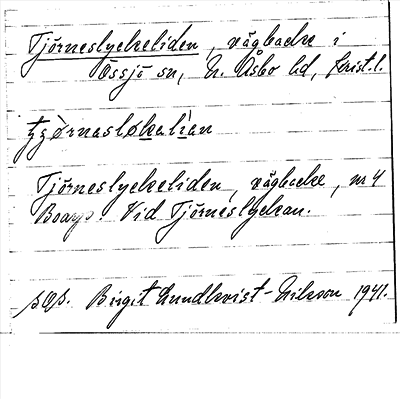 Tjörneslyckeliden, vägbacke i
Össjö sn, N. Åsbo hd, Krist. l.
Tjörneslyckeliden, vägbacke, nr 4
Vid Tjörneslyckan.
Birgit Lundkvist-Nilsson 1941.